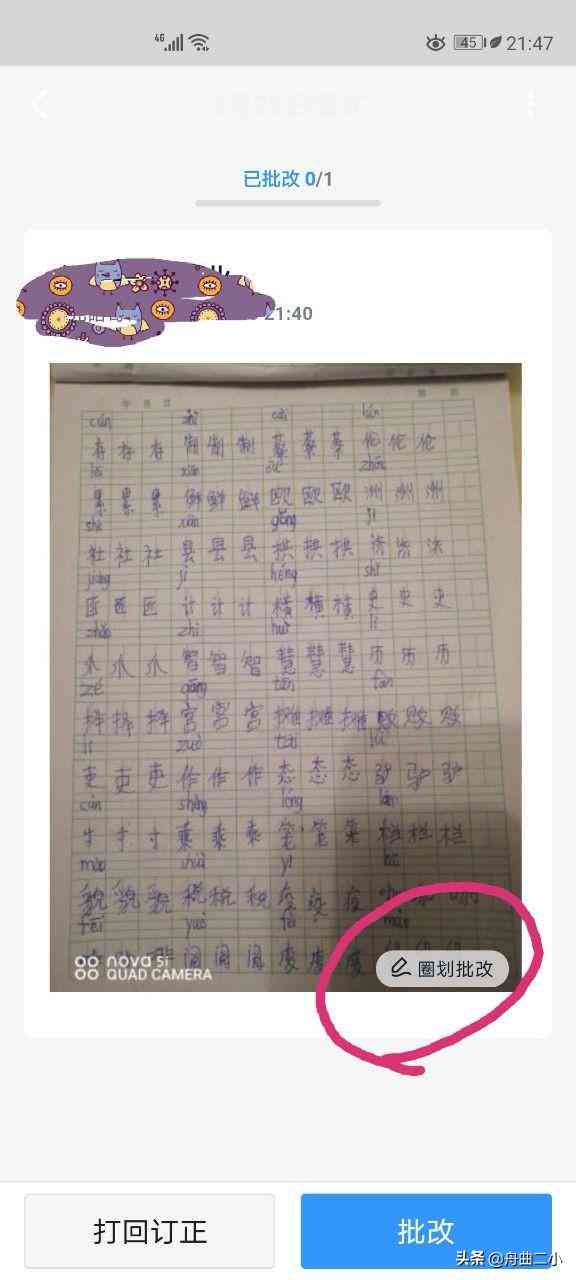 4G 45 21:47
已批改 0/1
21:40
cún cài lún
存 存 存 制 制 制 蔡 蔡 蔡 伦 伦 伦
lěi xiān ōu zhōu
累 累 累 鲜 鲜 鲜 欧 欧 欧 洲 洲 洲
shè xiàn gǒng jì
社 社 社 县 县 县 拱 拱 拱 济 济 济
jiàng jì héng shǐ
匠 匠 匠 计 计 计 横 横 横 史 史 史
zhǎo zhì huì lì
爪 爪 爪 智 智 智 慧 慧 慧 历 历 历
zé gōng tān
择 择 择 宫 宫 宫 摊 摊 摊 败 败 败
lì zuò tài lǘ
吏 吏 吏 作 作 作 态 态 态 驴 驴 驴
cùn lóng lán
寸 寸 寸 乘 乘 乘 笼 笼 笼 栏 栏 栏
mào shuì yì
貌 貌 貌 税 税 税 疫 疫 疫
fēi yuè
阅 阅 阅 度 度 度
nova 5i
QUAD CAMERA
圈划批改
打回订正
批改
头条 @舟曲二小